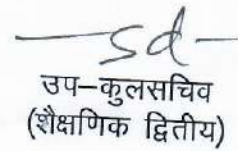 sd
उप–कुलसचिव
(शैक्षणिक द्वितीय)